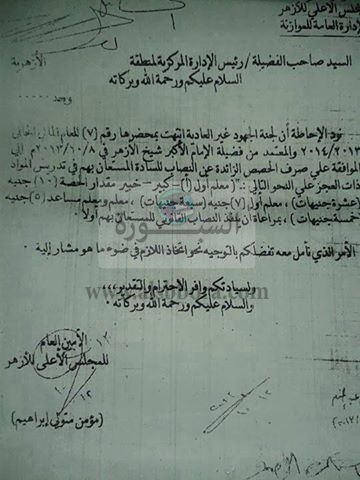 المجلس الأعلى للأزهر
الإدارة العامة للموازنة
السيد صاحب الفضيلة / رئيس الإدارة المركزية لمنطقة الأزهرية
السلام عليكم ورحمة الله وبركاته
وبعد ...
نود الإحاطة أن لجنة الجهود غير العادية انتهت بمحضرها رقم (٧) للعام المالي الحالي
٢٠١٤/٢٠١٣ والمعتمد من فضيلة الإمام الأكبر شيخ الأزهر في إلى
الموافقة على صرف الحصص الزائدة عن النصاب للسادة المستعان بهم في تدريس المواد
ذات العجز على النحو التالي :- (معلم أول أ - كبير - خبير مقدار الحصة (١٠) جنيه
(عشرة جنيهات) ، معلم أول (٧) جنيه (سبعة جنيهات) ، معلم ومعلم مساعد (٥) جنيه
(خمسة جنيهات) ، بمراعاة أن ينفذ النصاب القانوني للمستعان بهم أولاً
الأمر الذي نأمل معه تفضلكم بالتوجيه نحو اتخاذ اللازم في ضوء ما هو مشار إليه .
ولسيادتكم وافر الاحترام والتقدير ،،،
والسلام عليكم ورحمة الله وبركاته .
الأمين العام
للمجلس الأعلى للأزهر
(مؤمن متولي إبراهيم)